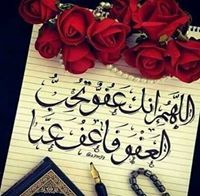 اللهم إنك عفو تحب
العفو فاعف عنا